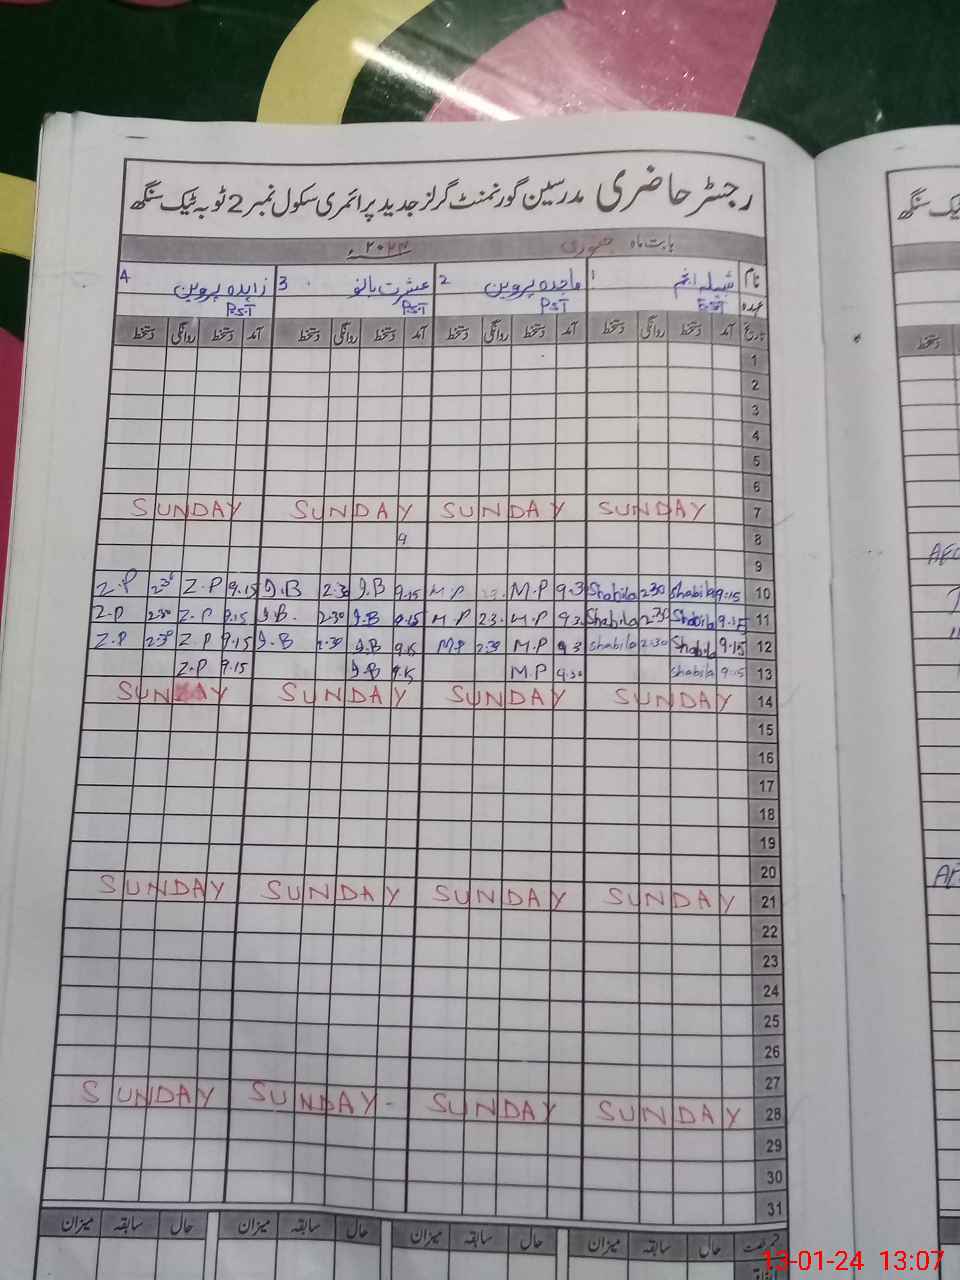 رجسٹر حاضری مدرسین گورنمنٹ گرلز جدید پرائمری سکول نمبر 2 ٹوبہ ٹیک سنگھ
بابت ماہ جنوری ۲۰۲۴ء
نام 1 شہیلہ انجم 2 ماجدہ پروین 3 عشرت بانو 4 زاہدہ پروین
عہدہ EST PST PST PST
تاریخ آمد دستخط روانگی دستخط آمد دستخط روانگی دستخط آمد دستخط روانگی دستخط آمد دستخط روانگی دستخط
1
2
3
4
5
6
SUNDAY SUNDAY SUNDAY SUNDAY 7
9 8
9
Z.P 2:30 Z.P 9.15 I.B 2:30 I.B 9.15 M.P M.P 9.3 Shabila 2:30 Shabila 9:15 10
Z.P 2:30 Z.P 9.15 I.B. 2:30 I.B 9.15 M.P 2.3. M.P 9.3 Shabila 2:30 Shabila 9:15 11
Z.P 2:30 Z.P 9.15 I.B 2:30 I.B 9.15 M.P 2:30 M.P 9.3 Shabila 2:30 Shabila 9.15 12
Z.P 9.15 I.B 9.15 M.P 9.30 Shabila 9:15 13
SUNDAY SUNDAY SUNDAY SUNDAY 14
15
16
17
18
19
20
SUNDAY SUNDAY SUNDAY SUNDAY 21
22
23
24
25
26
27
SUNDAY SUNDAY SUNDAY SUNDAY 28
29
30
31
حال سابقہ میزان حال سابقہ میزان حال سابقہ میزان حال سابقہ میزان
13-01-24 13:07